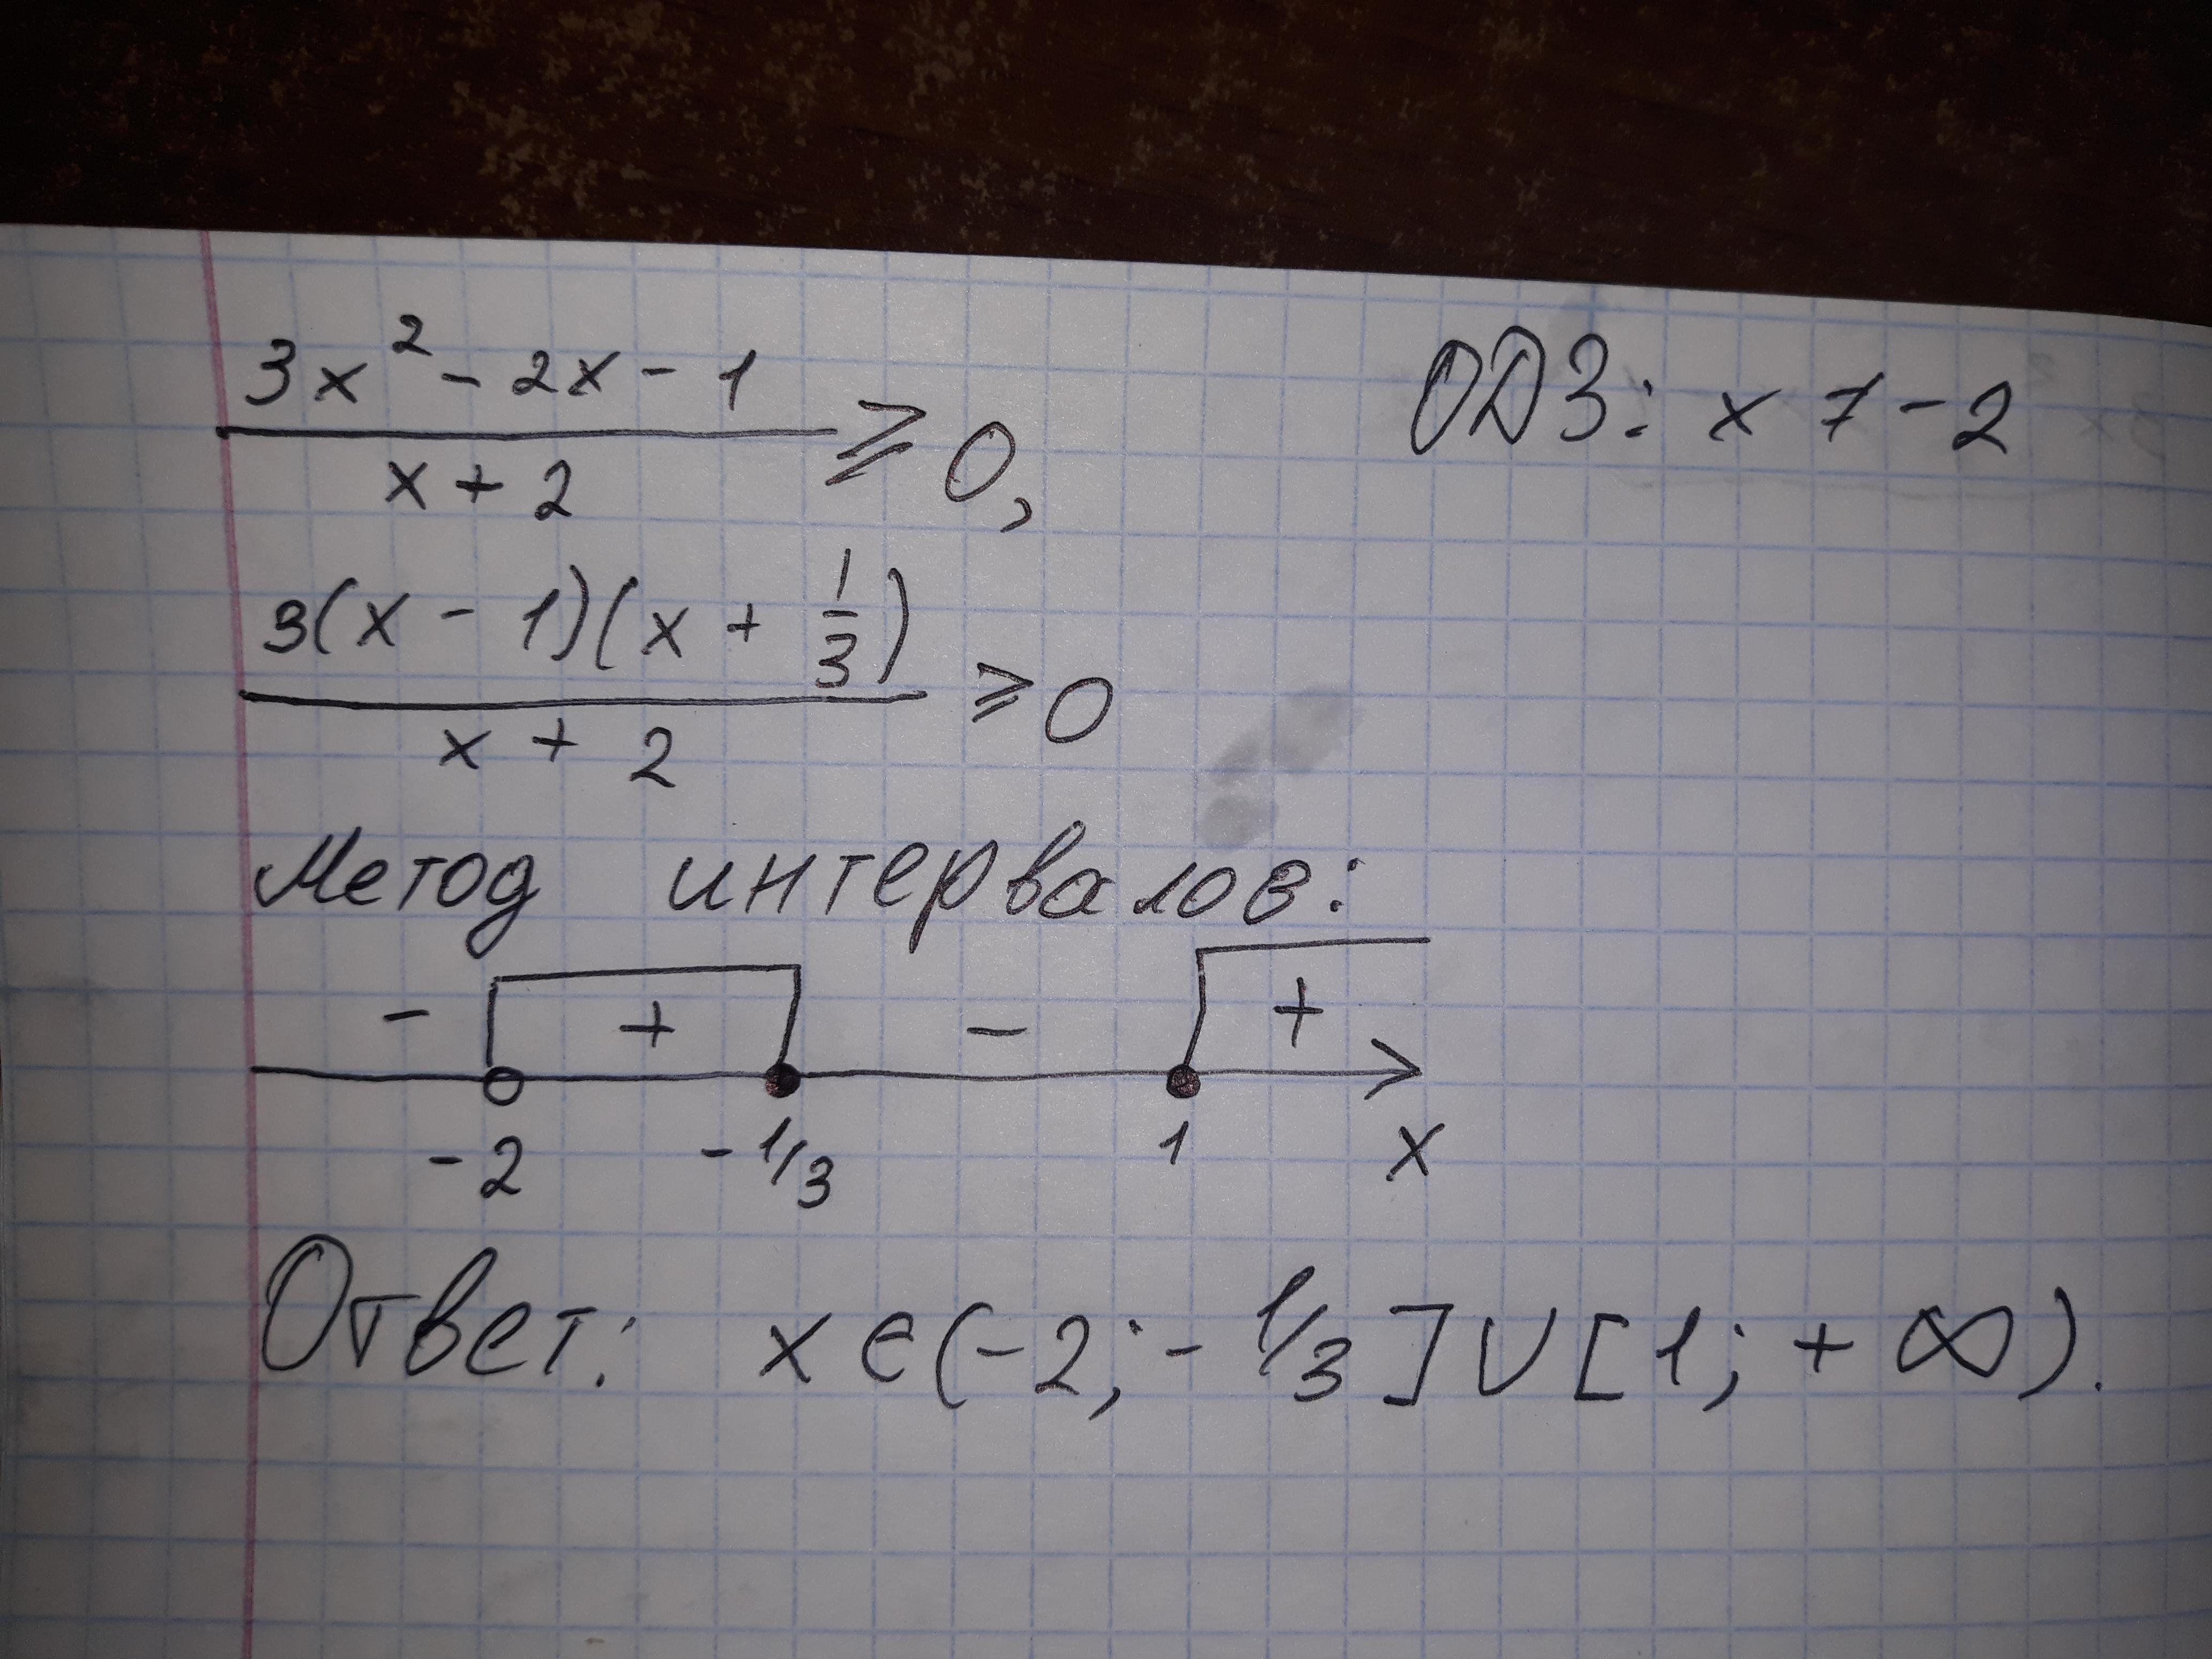 3x² - 2x - 1
x + 2
≥ 0,
ОДЗ: x ≠ -2
3(x - 1)(x + 1/3)
x + 2
≥ 0
Метод интервалов:
- + - +
-2 -1/3 1 x
Ответ: x ∈ (-2; -1/3] ∪ [1; +∞).